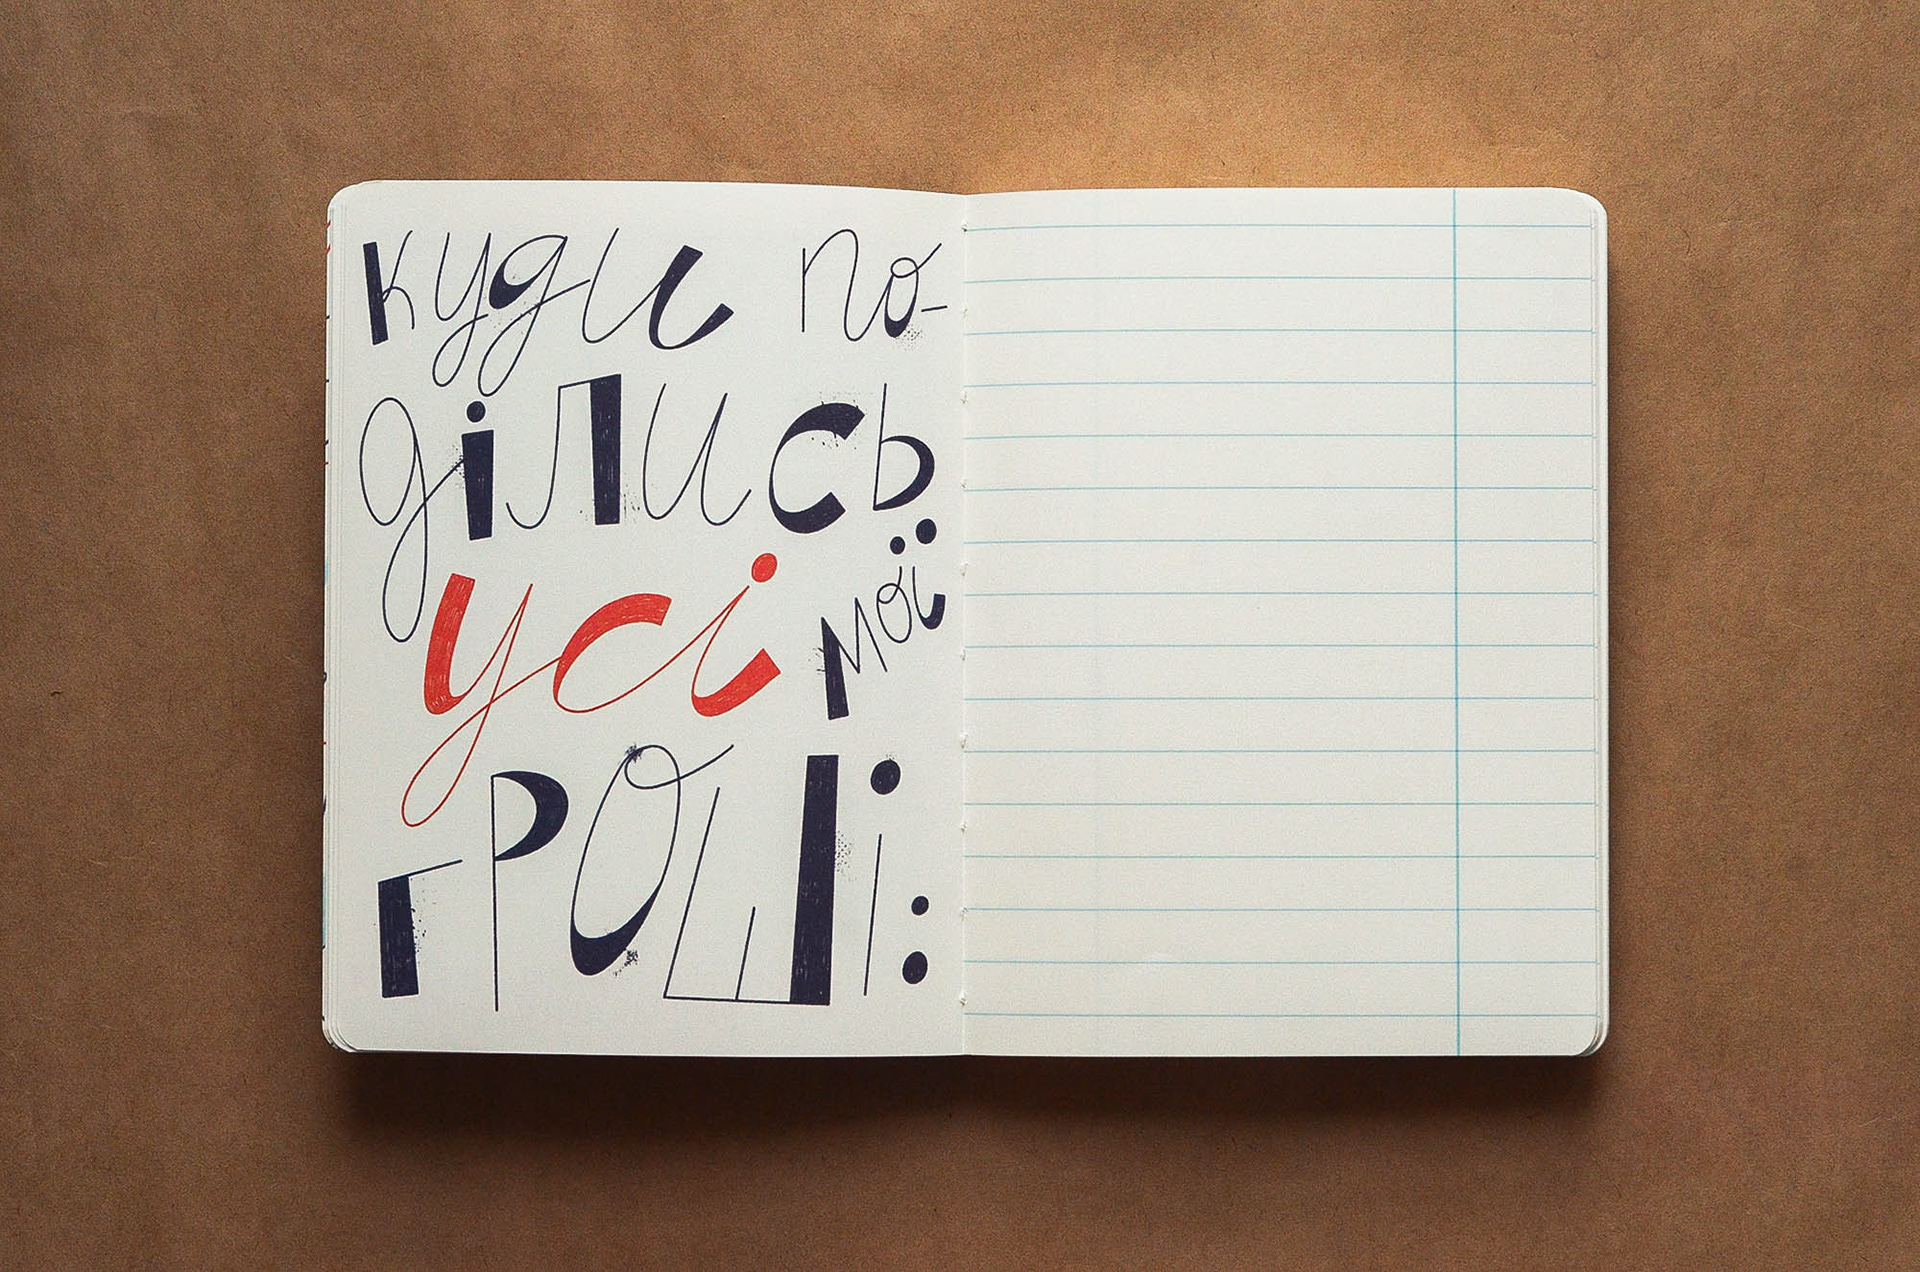 куди по-
ділись
усі мої
гроші: